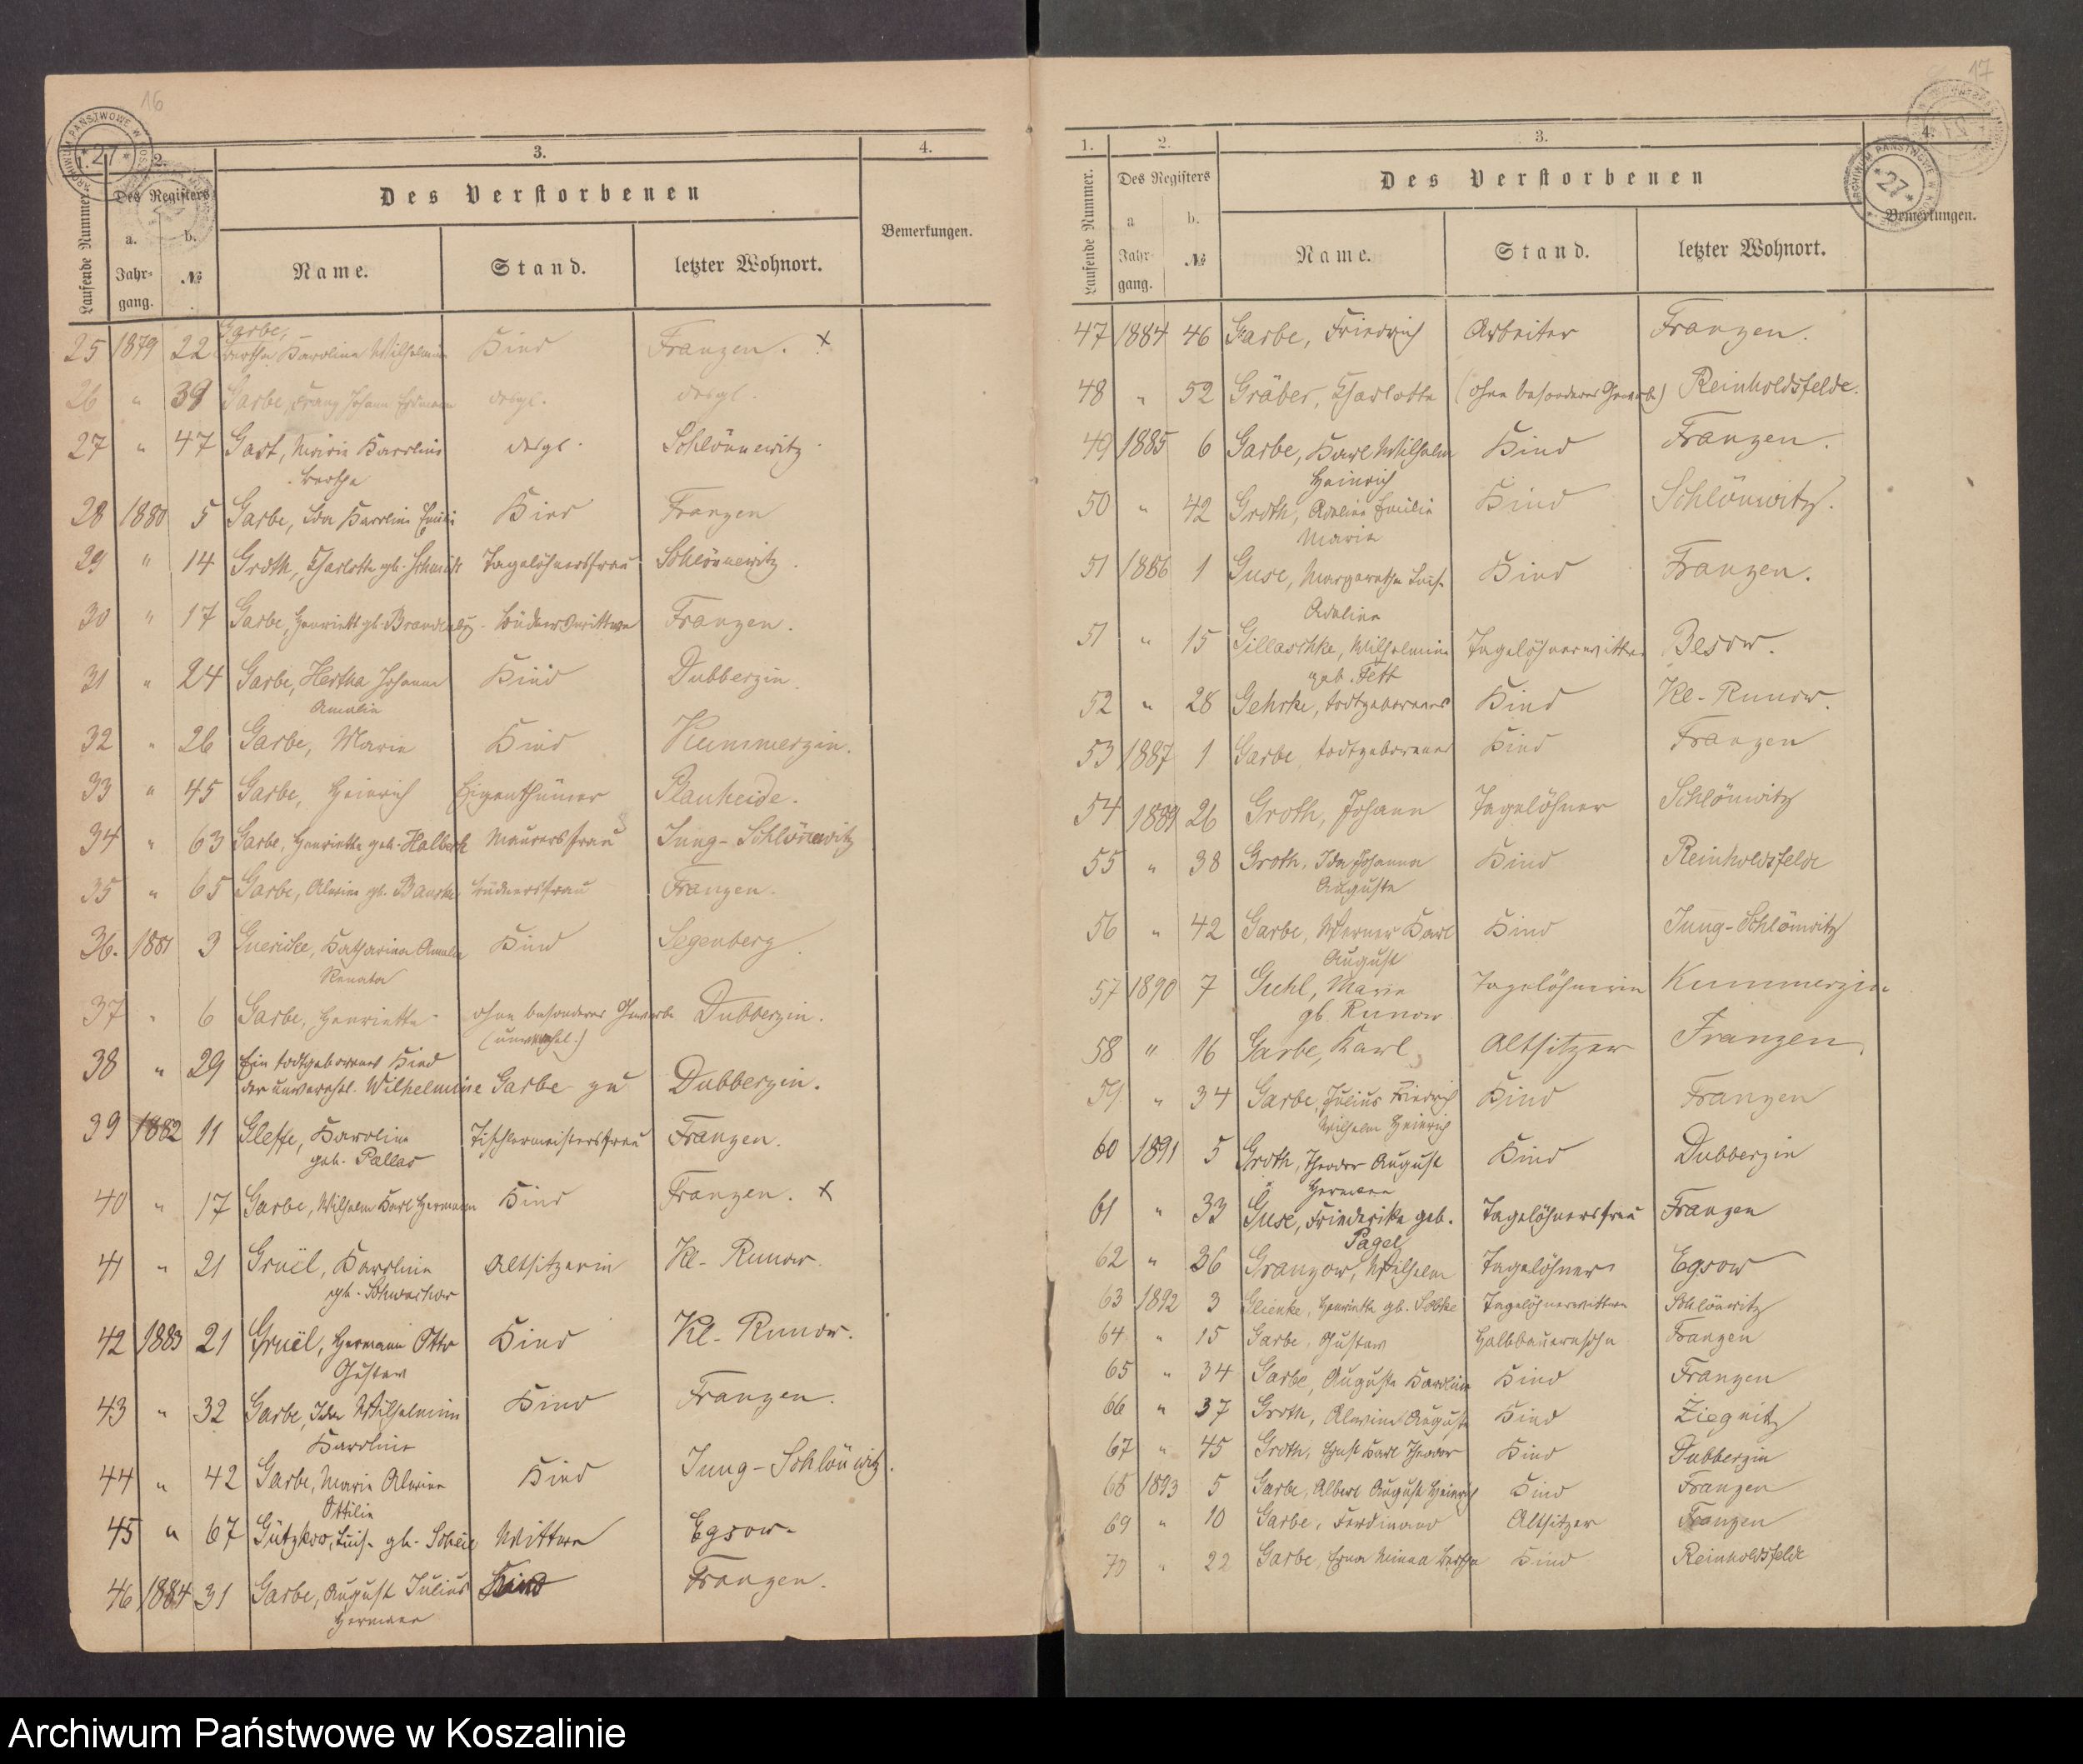 16
ARCHIWUM PAŃSTWOWE W
*27*
1. 2. 3. 4.
Laufende Nummer. Des Registers Des Verstorbenen Bemerkungen.
a. b.
Jahrgang. № Name. Stand. letzter Wohnort.
25 1879 22 Garbe, Bertha Karoline Wilhelmine Kind Franzen. x
26 " 39 Garbe, Franz Johann Erdmann desgl. desgl.
27 " 47 Gast, Marie Karoline desgl. Schlönnewitz.
Bertha
28 1880 5 Garbe, Ida Karoline Emilie Kind Franzen
29 " 14 Groth, Charlotte gb. Schmidt Tagelöhnersfrau Schlönnewitz.
30 " 17 Garbe, Henriette gb. Brandenbg. Büdnerwittwe Franzen.
31 " 24 Garbe, Hertha Johanne Kind Dubberzin.
Amalie
32 " 26 Garbe, Marie Kind Kummerzin.
33 " 45 Garbe, Heinrich Eigenthümer Planheide.
34 " 63 Garbe, Henriette geb. Maurersfrau Jung-Schlönnewitz
35 " 65 Garbe, Alwine gb. Büdnersfrau Franzen.
36. 1881 3 Guericke, Katharina Amalie Kind Segenberg.
Renata
37 " 6 Garbe, Henriette ohne besonderes Gewerbe Dubberzin.
(unverehel.)
38 " 29 Ein todtgeborenes Kind
der unverehel. Wilhelmine Garbe zu Dubberzin.
39 1882 11 Karoline Tischlermeistersfrau Franzen.
geb. Pallas
40 " 17 Garbe, Wilhelm Karl Hermann Kind Franzen. x
41 " 21 Gruël, Karoline Altsitzerin Kl.-Runow.
gb.
42 1883 21 Gruël, Hermann Otto Kind Kl.-Runow.
Gustav
43 " 32 Garbe, Ida Wilhelmine Kind Franzen.
Karoline
44 " 42 Garbe, Marie Alwine Kind Jung-Schlönwitz.
Ottilie
45 " 67 Gützkow, Luise gb. Wittwe Egsow.
46 1884 31 Garbe, August Julius Kind Franzen.
Hermann
17
ARCHIWUM PAŃSTWOWE W
*27*
1. 2. 3. 4.
Laufende Nummer. Des Registers Des Verstorbenen Bemerkungen.
a b.
Jahrgang. № Name. Stand. letzter Wohnort.
47 1884 46 Garbe, Friedrich Arbeiter Franzen.
48 " 52 Gräber, Charlotte (ohne besonderes Gewerbe) Reinholdsfelde.
49 1885 6 Garbe, Karl Wilhelm Kind Franzen.
Heinrich
50 " 42 Groth, Adeline Emilie Kind Schlönwitz.
Marie
51 1886 1 Guse, Margarethe Luise Kind Franzen.
Adeline
51 " 15 Gillaschke, Wilhelmine Tagelöhnerwittwe Besow.
geb. Fett
52 " 28 Gehrke, todtgeborenes Kind Kl.-Runow.
53 1887 1 Garbe, todtgeborenes Kind Franzen
54 1889 26 Groth, Johann Tagelöhner Schlönwitz
55 " 38 Groth, Ida Johanna Kind Reinholdsfelde
Auguste
56 " 42 Garbe, Werner Karl Kind Jung-Schlönwitz
August
57 1890 7 Guhl, Marie Tagelöhnerin Kummerzin
gb. Runow
58 " 16 Garbe, Karl Altsitzer Franzen.
59 " 34 Garbe, Julius Friedrich Kind Franzen
Wilhelm Heinrich
60 1891 5 Groth, Theodor August Kind Dubberzin
Hermann
61 " 33 Guse, Friederike geb. Tagelöhnersfrau Franzen
Pagel
62 " 36 Granzow, Wilhelm Tagelöhner Egsow
63 1892 3 Glienke, Henriette gb. Tagelöhnerwittwe Schlönwitz
64 " 15 Garbe, Gustav Halbbauernsohn Franzen
65 " 34 Garbe, Auguste Karoline Kind Franzen
66 " 37 Groth, Alwine Auguste Kind Ziegnitz
67 " 45 Groth, Ernst Karl Theodor Kind Dubberzin
68 1893 5 Garbe, Albert August Heinrich Kind Franzen
69 " 10 Garbe, Ferdinand Altsitzer Franzen
70 " 22 Garbe, Erna Minna Bertha Kind Reinholdsfelde
Archiwum Państwowe w Koszalinie